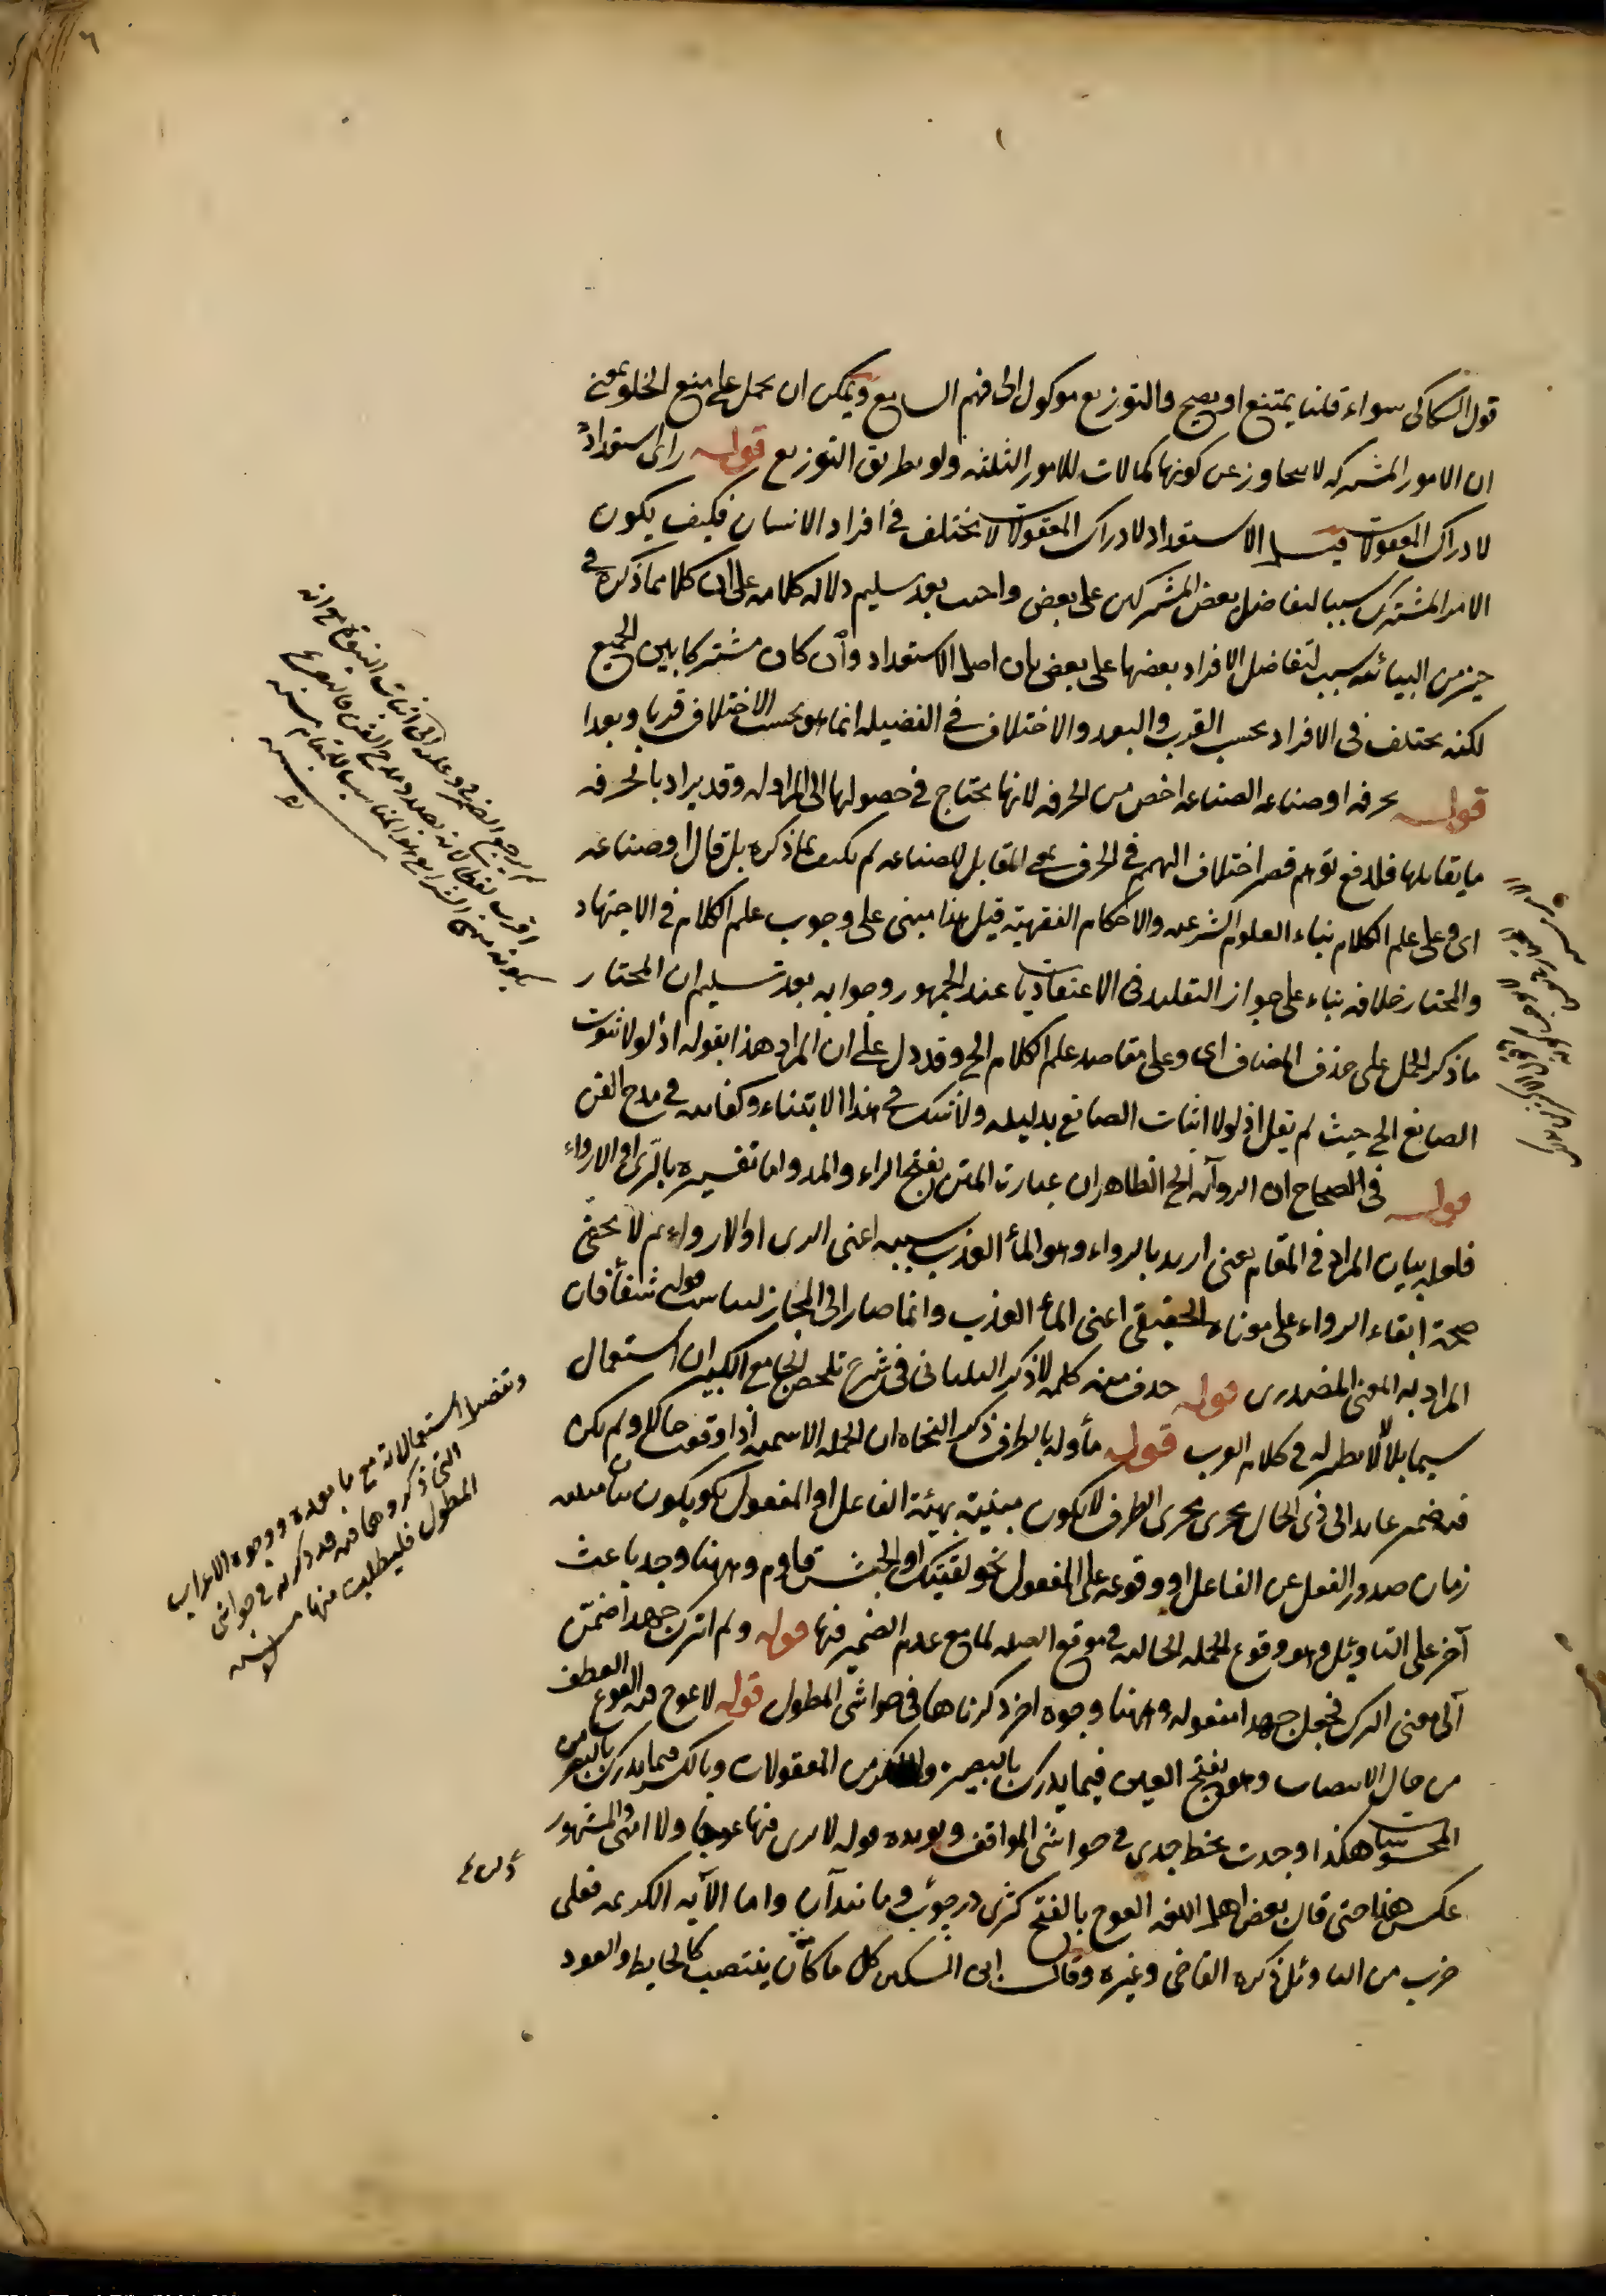 قول السكاكى سواء قلنا يمتنع او يصح والتوزيع موكول الى فهم السامع ويمكن ان يحمل على منع الخلو بمعنى
ان الامور المشتركه لا يتجاوز عن كونها كمالات للامور الثلثه ولو بطريق التوزيع قوله راى استعدادا
لادراك المعقولات قيل الاستعداد لادراك المعقولات لا يختلف فى افراد الانسان فكيف يكون
الامر المشترك سببا لتفاضل بعض المشتركين على بعض واجيب بعد تسليم دلاله كلامه على ان كلا مما ذكره فى
حيز من البيانيه سبب لتفاضل الافراد بعضها على بعض بان اصل الاستعداد وان كان مشتركا بين الجميع
لكنه يختلف فى الافراد بحسب القرب والبعد والاختلاف فى الفضيله انما هو بحسب الاختلاف قربا وبعدا
قوله بحرفه او صناعه الصناعه اخص من الحرفه لانها يحتاج فى حصولها الى المزاوله وقد يراد بالحرفه
ما يقابلها فلدفع توهم قصر اختلاف الهمم فى الحرف بمعنى المقابل للصناعه لم يكتف بما ذكره بل قال او صناعه
اى وعلى علم الكلام بناء العلوم الشرعيه والاحكام الفقهيه قيل هذا مبنى على وجوب علم الكلام فى الاجتهاد
والمختار خلافه بناء على جواز التقليد فى الاعتقاديات عند الجمهور وجوابه بعد تسليم ان المختار
ما ذكر الحمل على حذف المضاف اى وعلى مقاصد علم الكلام الخ وقد دل على ان المراد هذا بقوله اذ لولا ثبوت
الصانع الخ حيث لم يقل اذ لولا اثبات الصانع بدليله ولا شك فى هذا الابتناء وكفايته فى مدح الفن
قوله فى الصحاح ان الرواء الخ الظاهر ان عبارة المتن بفتح الراء والمد واما تفسيره بالرى او الارواء
فلعله بيان المراد فى المقام يعنى اريد بالرواء وهو الماء العذب سببه اعنى الرى او الارواء ثم لا يخفى
صحة ابقاء الرواء على معناه الحقيقى اعنى الماء العذب وانما صار الى المجاز ليناسب قوله شفاء فان
المراد به المعنى المصدرى قوله حذف منه كلمه لا ذكر البلبانى فى شرح تلخيص الجامع الكبير ان استعمال
سيما بلا لا نظير له فى كلام العرب قوله مأوله بالظرف ذكر النحاه ان الجمله الاسميه اذا وقعت حالا ولم يكن
فيه ضمير عايد الى ذى الحال يجرى مجرى الظرف لا يكون مبينه بهيئة الفاعل او المفعول بل يكون بيان هيئه
زمان صدور الفعل عن الفاعل او وقوعه على المفعول نحو لقيتك والجيش قادم وههنا وجد باعث
آخر على التاويل وهو وقوع الجمله الحاليه فى موقع الصله لما مع عدم الضمير فيها قوله ولم اترك جهدا ضمن
آلى معنى الترك فجعل جهدا مفعوله وههنا وجوه اخر ذكرناها فى حواشى المطول قوله لا عوج فيه العوج العطف
من حال الانتصاب وهو بفتح العين فيما يدرك بالبصيره والفكر من المعقولات وبالكسر فيما يدرك بالبصر من
المحسوسات هكذا وجدت بخط جدى فى حواشى المواقف ويويده قوله لا ترى فيها عوجا ولا امتا والمشهور
عكس هذا حتى قال بعض اهل اللغه العوج بالفتح كژى در چوب ومانند آن واما الآيه الكريمه فعلى
ضرب من التاويل ذكره القاضى وغيره وقال ابن السكيت كل ما كان ينتصب كالحايط والعود
ثم يرجع الضمير فى وعليه الى اثبات النبوة مع انه
اقرب لفظا لانه بصدد مدح الفن فالتفرع
بكونه مبنى الشرايع هو المناسب للمقام منه
وتفصيل استعمالاته مع ما بعده ووجوه الاعراب
التى ذكروها فيه قد ذكرته فى حواشى
المطول فليطلب منها منه